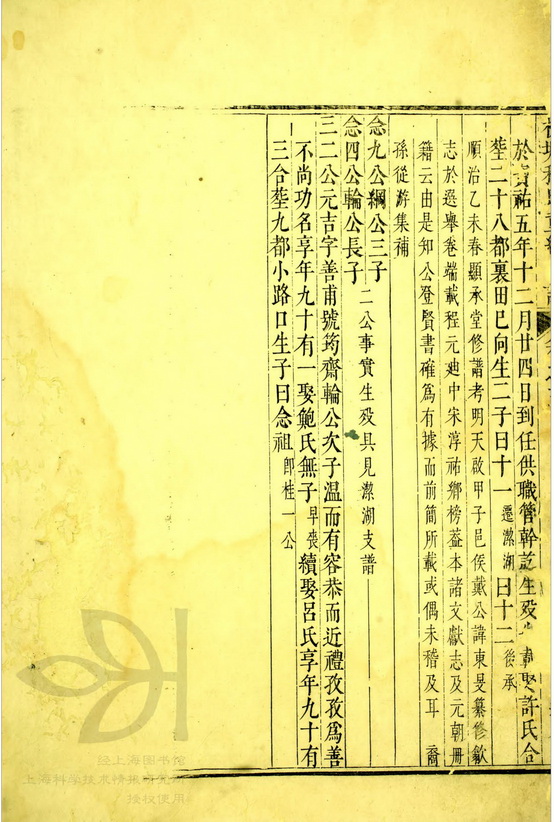 於寶祐五年十二月廿四日到任供職管幹 生歿 娶許氏合
塟二十八都裏田巳向生二子曰十一遷潔湖曰十二後承
順治乙未春顯承堂修譜考明天啟甲子邑侯戴公諱東旻纂修歙
志於選舉卷端載程元廸中宋淳祐鄉榜葢本諸文獻志及元朝冊
籍云由是知公登賢書確爲有據而前簡所載或偶未稽及耳 裔
孫從游集補
念九公綱公三子
念四公輪公長子二公事實生歿具見潔湖支譜
三二公元吉字善甫號筠齋輪公次子温而有容恭而近禮孜孜爲善
不尚功名享年九十有一娶鮑氏無子早喪續娶呂氏享年九十有
三合塟九都小路口生子曰念祖卽桂一公
经上海图书馆
上海科学技术情报研究所
授权使用